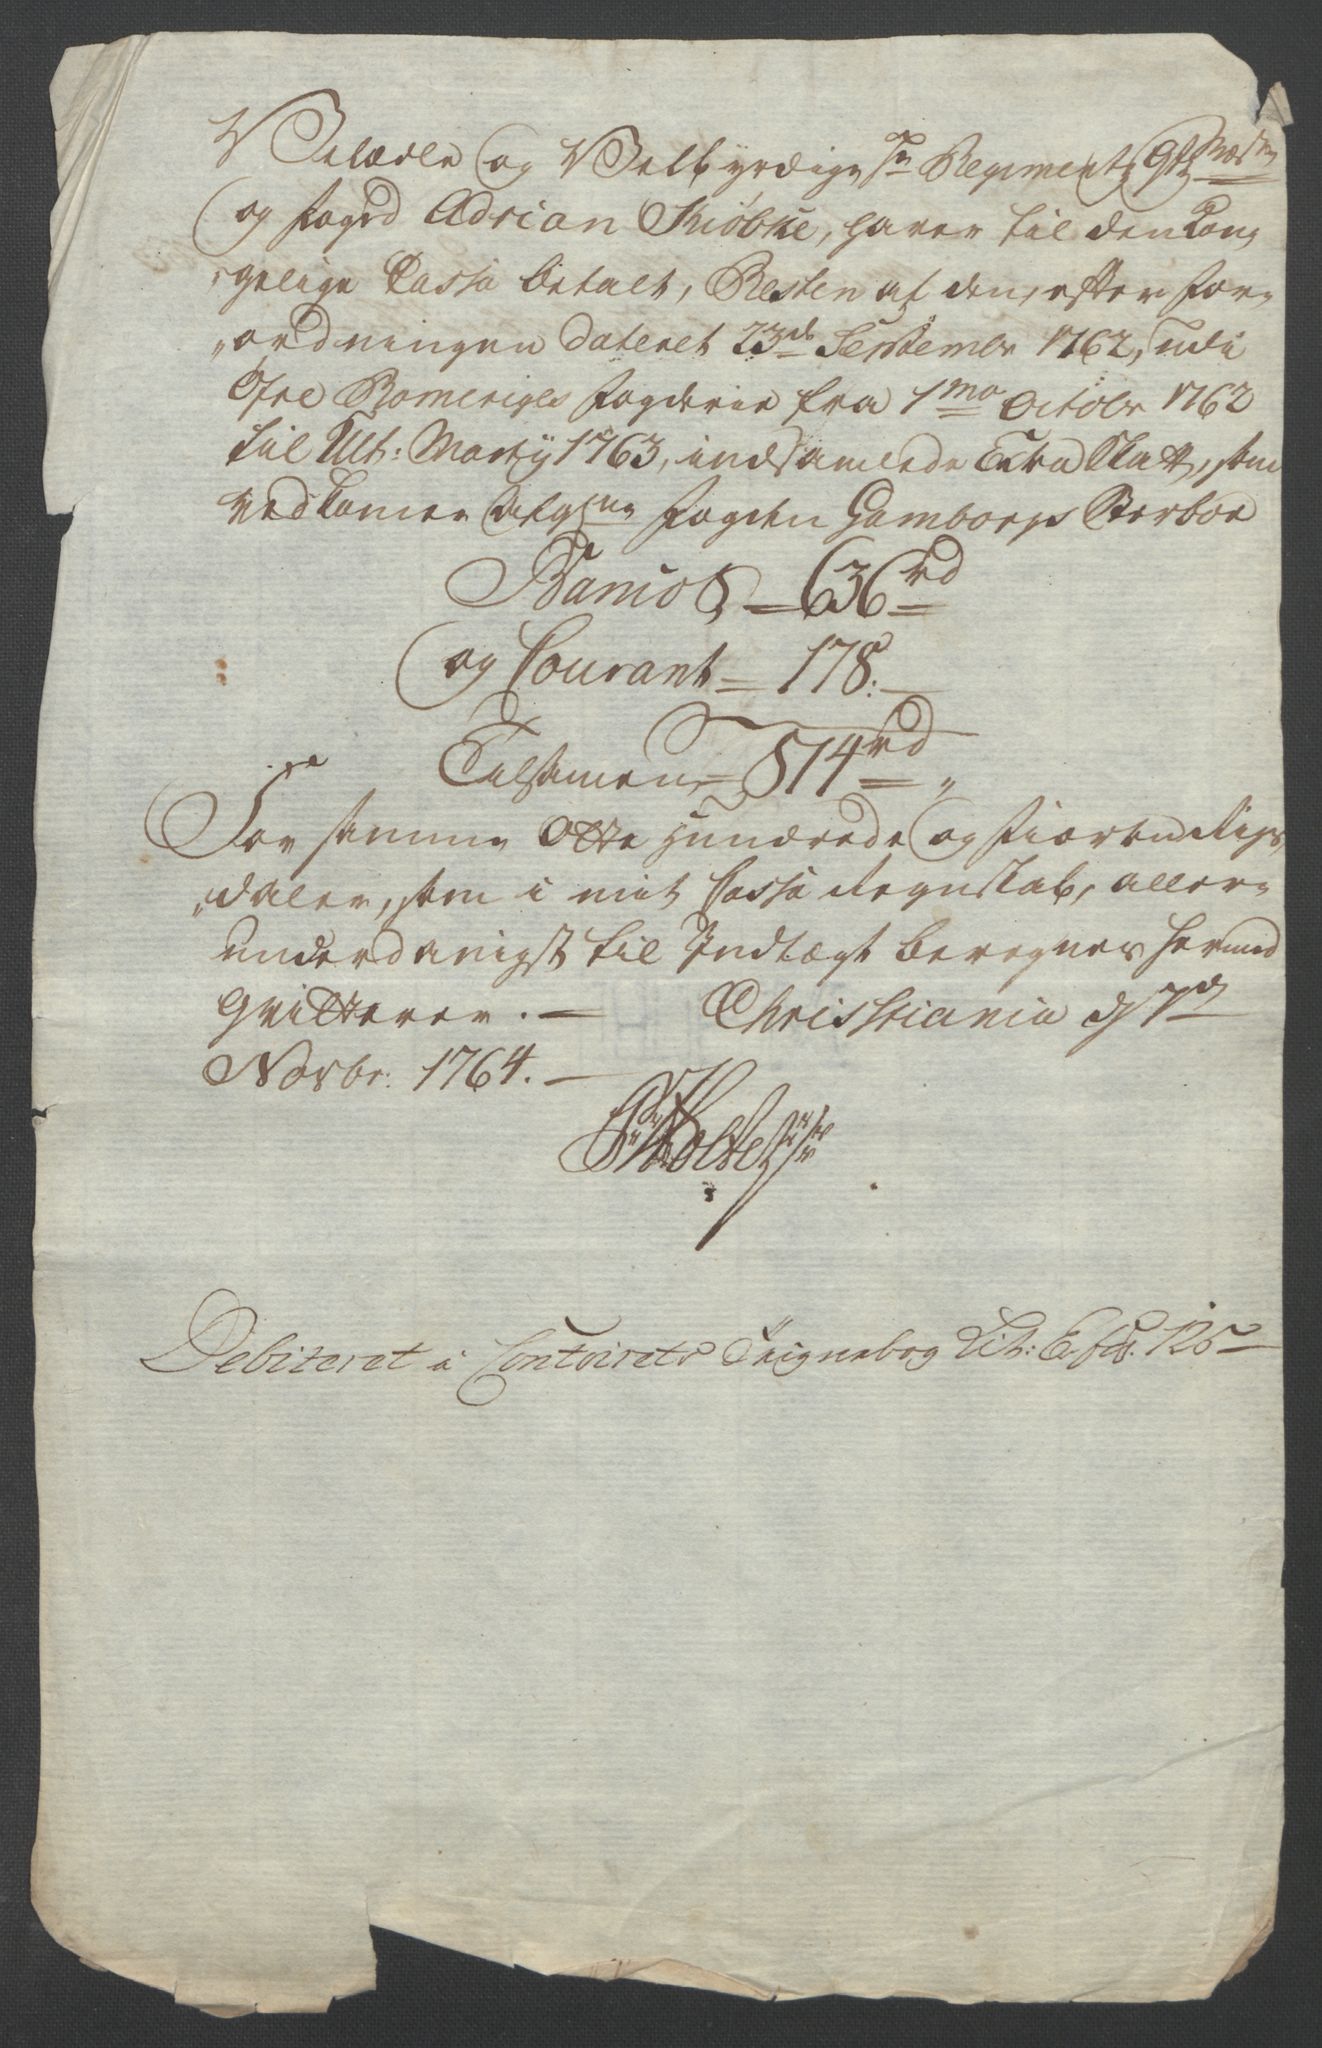 Velædle og Velbyrdige Hr Regiments Qt: Mester
og Foged Adrian Kiøbke, haver til den Kon„
„gelige Cassa betalt, Resten af den, efter For„
„ordningen dateret 23de Septembr 1762, udi
Øfre Romeriges Fogderie fra 1mo Octobr 1762
til Ult: Martij 1763, indsamlede Extra Skatt, som
vedkommer afgangne Fogden Gamborgs Sterboe
Banco S — 636 rd
og Courant — 178.—
Tilsamen — 814 rd „
For samme Otte Hundrede og Fiorten Rigs„
„daler, som i mit Cassa Regnskab, aller„
underdanigst til Indtægt beregnes hermed
Qvitterer. — Christiania d 7d
Novbr: 1764. —
PHolter
Debiteret i Contoirets Teignebog Lit: E. fol: 125 —